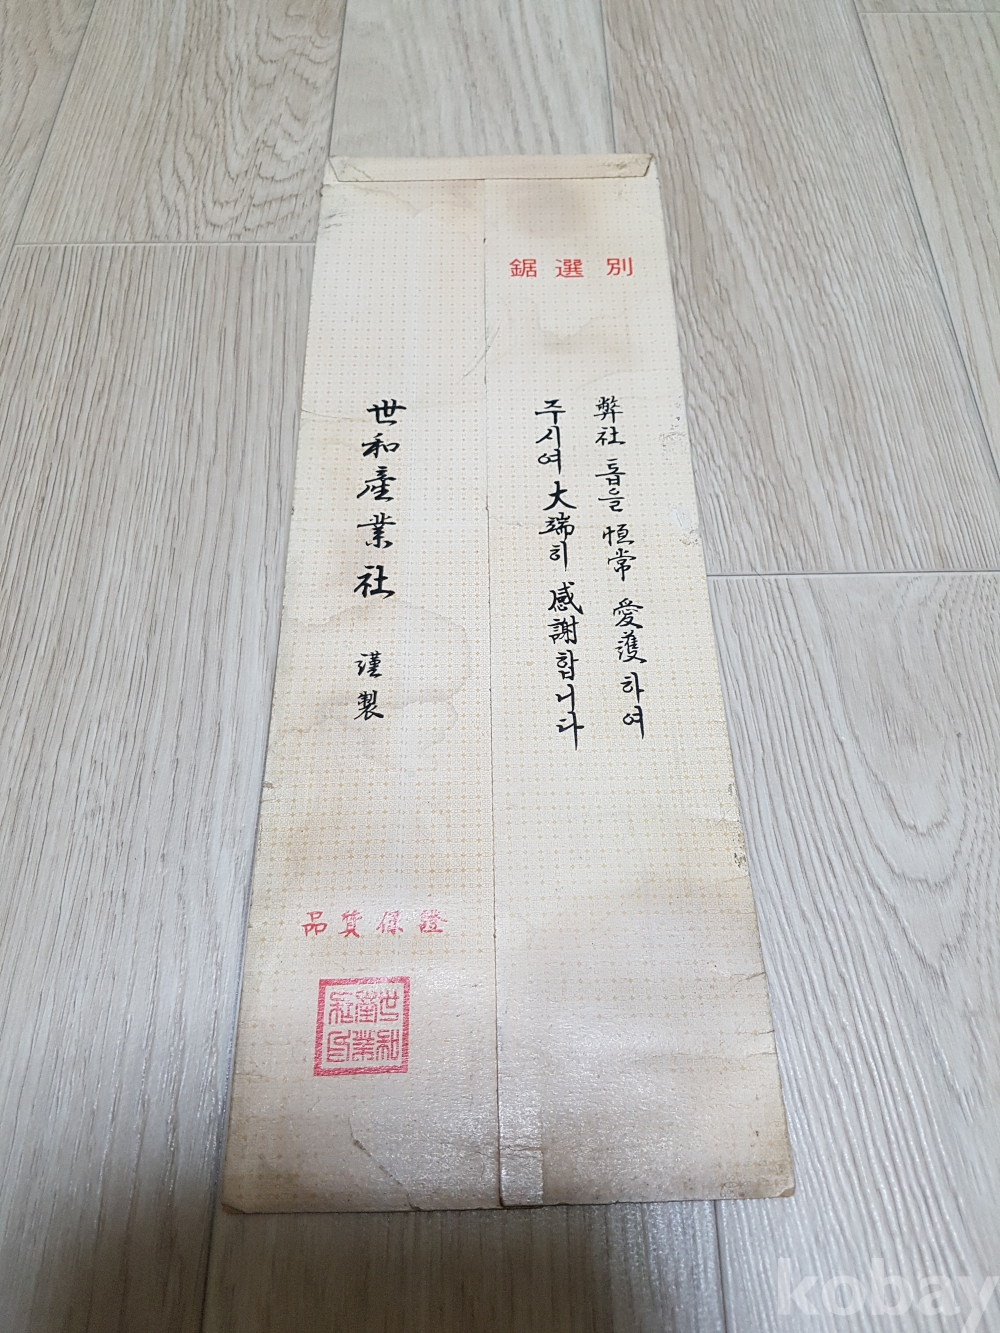 別選鋸
弊社 톱을 恒常 愛護하여
주시여 大端히 感謝합니다
世和産業社 謹製
品質保證
世和産業社印
kobay